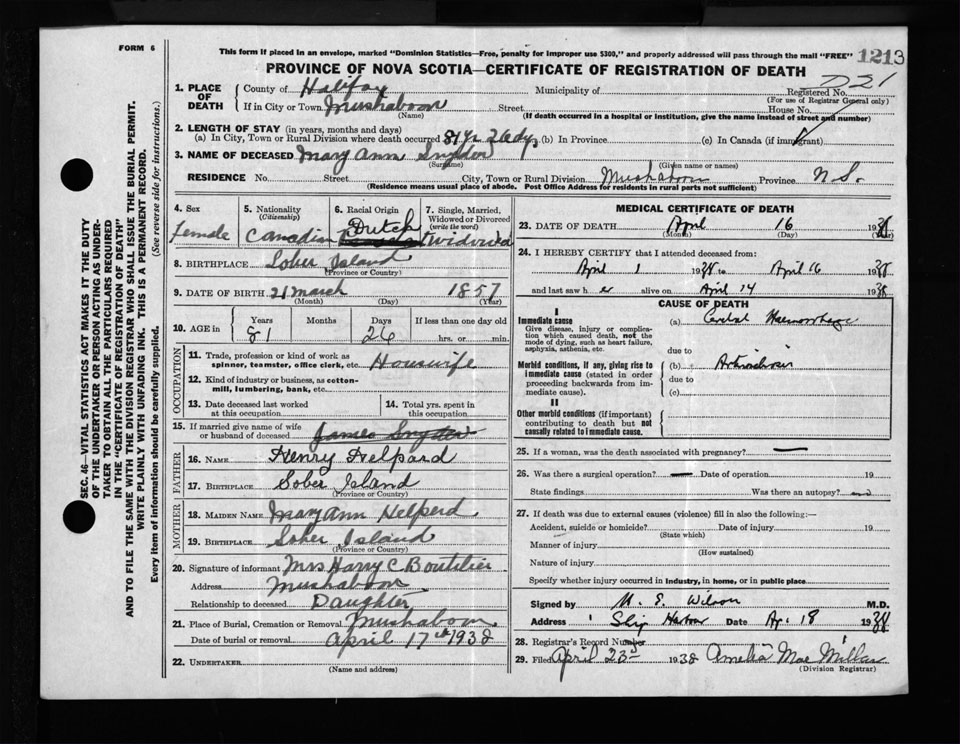 FORM 6
This form if placed in an envelope, marked "Dominion Statistics—Free, penalty for improper use $300," and properly addressed will pass through the mail "FREE"
1213
PROVINCE OF NOVA SCOTIA—CERTIFICATE OF REGISTRATION OF DEATH
721
SEC. 46—VITAL STATISTICS ACT MAKES IT THE DUTY
OF THE UNDERTAKER OR PERSON ACTING AS UNDER-
TAKER TO OBTAIN ALL THE PARTICULARS REQUIRED
IN THE "CERTIFICATE OF REGISTRATION OF DEATH"
AND TO FILE THE SAME WITH THE DIVISION REGISTRAR WHO SHALL ISSUE THE BURIAL PERMIT.
WRITE PLAINLY WITH UNFADING INK. THIS IS A PERMANENT RECORD.
Every item of information should be carefully supplied. (See reverse side for instructions.)
1. PLACE OF DEATH
County of Halifax Municipality of Registered No.
(For use of Registrar General only)
If in City or Town Mushaboom Street House No.
(Name) (If death occurred in a hospital or institution, give the name instead of street and number)
2. LENGTH OF STAY (in years, months and days)
(a) In City, Town or Rural Division where death occurred 81 yr 26 dy. (b) In Province (c) In Canada (if immigrant)
3. NAME OF DECEASED Mary Ann Snyder
(Surname) (Given name or names)
RESIDENCE No. Street City, Town or Rural Division Mushaboom Province N.S.
(Residence means usual place of abode. Post Office Address for residents in rural parts not sufficient)
4. Sex
Female
5. Nationality
(Citizenship)
Canadian
6. Racial Origin
Dutch
7. Single, Married,
Widowed or Divorced
(write the word)
Widowed
8. BIRTHPLACE Sober Island
(Province or Country)
9. DATE OF BIRTH 21 March 1857
(Month) (Day) (Year)
10. AGE in
Years Months Days If less than one day old
81 26 hrs. or min.
OCCUPATION
11. Trade, profession or kind of work as
spinner, teamster, office clerk, etc. Housewife
12. Kind of industry or business, as cotton-
mill, lumbering, bank, etc.
13. Date deceased last worked
at this occupation
14. Total yrs. spent in
this occupation
15. If married give name of wife
or husband of deceased James Snyder
FATHER
16. NAME Henry Helpard
17. BIRTHPLACE Sober Island
(Province or Country)
MOTHER
18. MAIDEN NAME Mary Ann Helperd
19. BIRTHPLACE Sober Island
(Province or Country)
20. Signature of informant Mrs Harry C Boutilier
Address Mushaboom
Relationship to deceased Daughter
21. Place of Burial, Cremation or Removal Mushaboom
Date of burial or removal April 17th 1938
22. UNDERTAKER
(Name and address)
MEDICAL CERTIFICATE OF DEATH
23. DATE OF DEATH April 16 1938
(Month) (Day) (Year)
24. I HEREBY CERTIFY that I attended deceased from:
April 1 1938 to April 16 1938
and last saw her alive on April 14 1938
CAUSE OF DEATH
I
Immediate cause
Give disease, injury or complica-
tion which caused death, not the
mode of dying, such as heart failure,
asphyxia, asthenia, etc.
(a) Cerebral Haemorrhage
due to
Morbid conditions, if any, giving rise to
immediate cause (stated in order
proceeding backwards from im-
mediate cause).
(b)
due to
(c)
II
Other morbid conditions (if important)
contributing to death but not
causally related to immediate cause.
25. If a woman, was the death associated with pregnancy? —
26. Was there a surgical operation? — Date of operation 19
State findings Was there an autopsy? no
27. If death was due to external causes (violence) fill in also the following:—
Accident, suicide or homicide? Date of injury 19
(State which)
Manner of injury
(How sustained)
Nature of injury
Specify whether injury occurred in industry, in home, or in public place
Signed by M. E. Wilson M.D.
Address Ship Harbour Date Ap. 18 1938
28. Registrar's Record Number
29. Filed April 23rd 1938 Amelia Mae Millar
(Division Registrar)